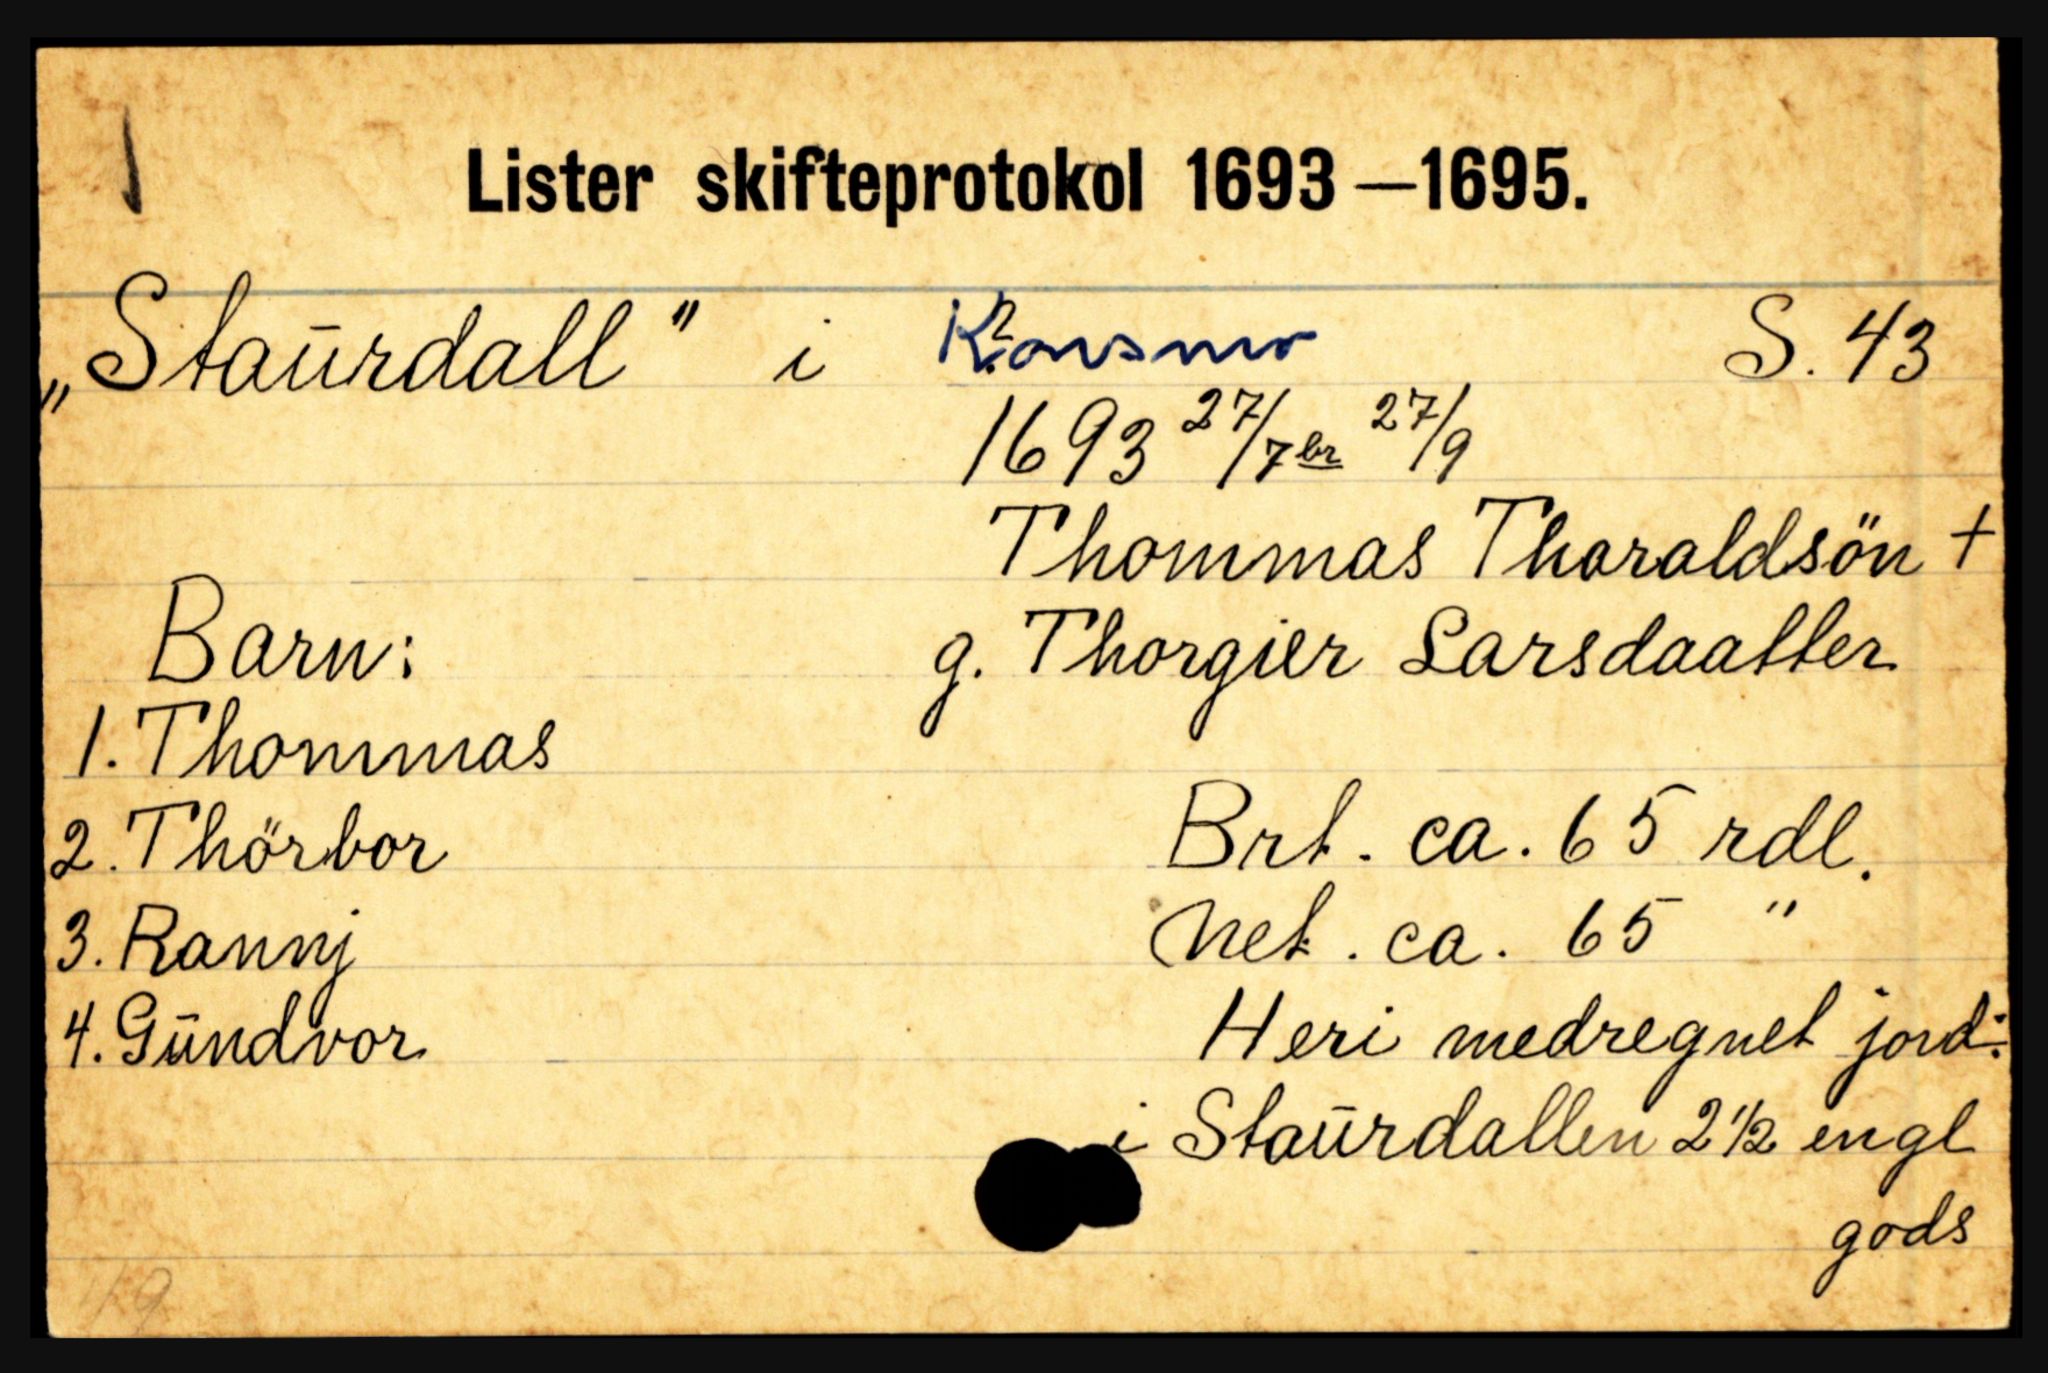 Lister skifteprotokol 1693–1695.
„Staŭrdall" i Konsmo S. 43
1693 27/7br 27/9
Thommas Tharaldsön +
Barn: g. Thorgier Larsdaatter
1. Thommas
2. Thörbor Brt. ca. 65 rdl.
3. Rannj Net. ca. 65 "
4. Gŭndvor Heri medregnet jord:
i Staŭrdallen 2 1/2 engl
gods
49